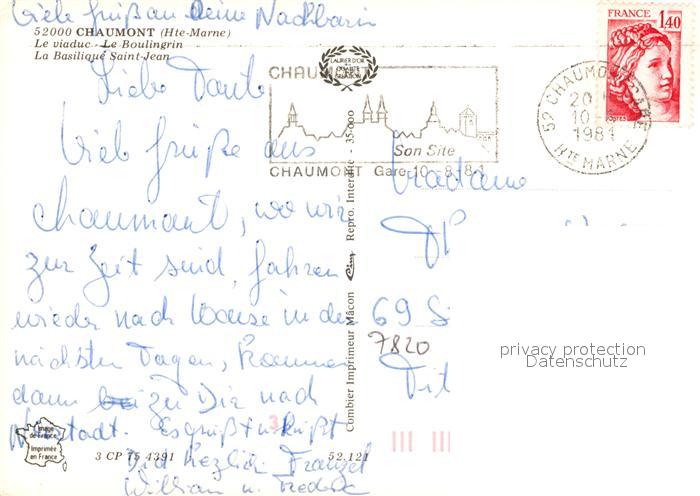 Viele Grüße an Deine Nachbarin
52000 CHAUMONT (Hte-Marne)
Le viaduc - Le Boulingrin
La Basilique Saint-Jean
Liebe Tante
Viele Grüße aus
Chaumont, wo wir
zur Zeit sind, fahren
wieder nach Hause in den
nächsten Tagen, kommen
dann zu Dir nach
Es grüßt u. küßt
Dich herzlich
William u.
LAURIER D'OR
CHAUMONT
Son Site
CHAUMONT Gare 10-8.81
FRANCE
1,40
POSTES
52 CHAUMONT GARE
20 H
10-
1981
HTE MARNE
Madame
69
7820
Tit
privacy protection
Datenschutz
Combier Imprimeur Mâcon Cim Repro. Interdite - 35.000
Image
de France
Imprimée
en France
3 CP 75 4391
52.121
3